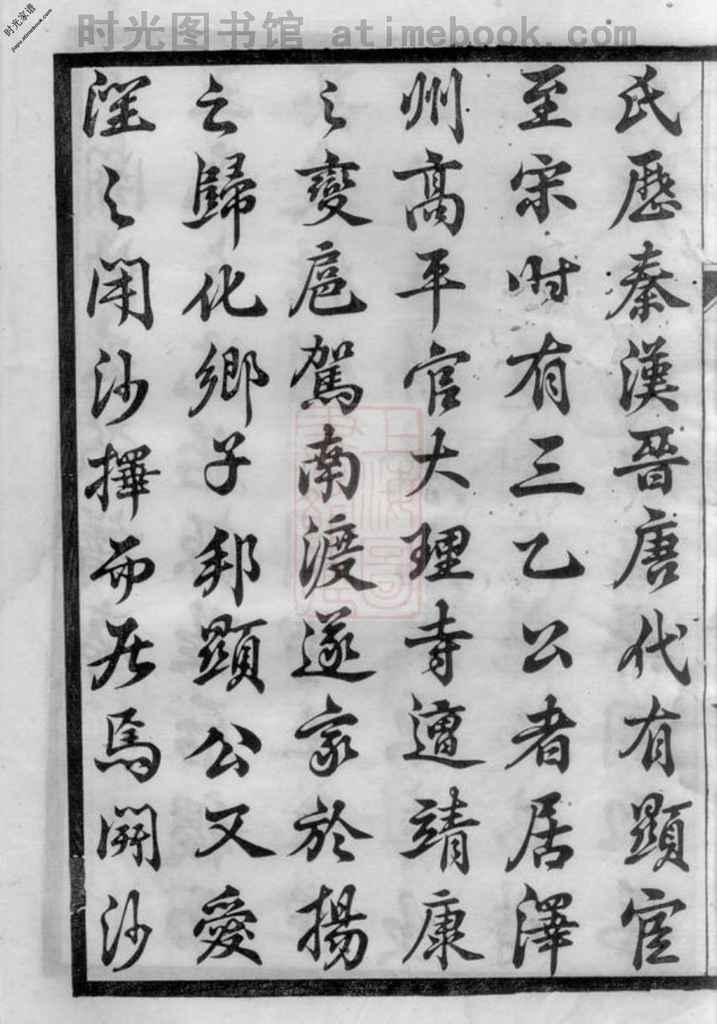 时光图书馆 atimebook.com
时光家谱
jiapu.atimebook.com
氏歷秦漢晉唐代有顯宦
至宋时有三乙公者居澤
州高平官大理寺遭靖康
之變扈駕南渡遂家於揚
之歸化鄉子邦顯公又愛
潤之開沙擇而居焉開沙